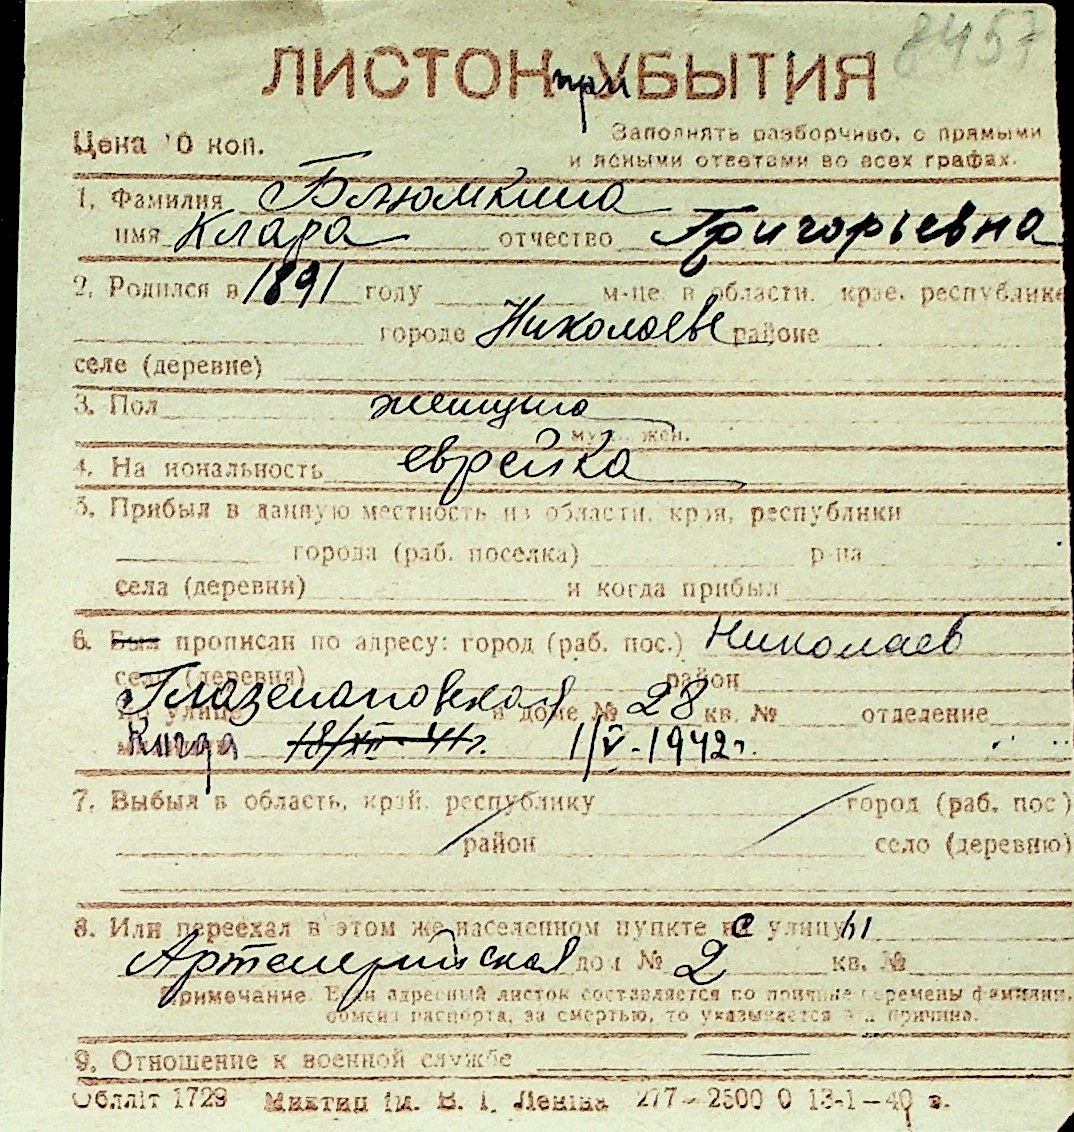 8457
ЛИСТОК при УБЫТИЯ
Цена 10 коп.
Заполнять разборчиво, с прямыми
и ясными ответами во всех графах.
1. Фамилия Блюмкина
имя Клара отчество Григорьевна
2. Родился в 1891 году м-це в области, крае, республике
городе Николаеве районе
селе (деревне)
3. Пол женщина
муж. жен.
4. Национальность еврейка
5. Прибыл в данную местность из области, края, республики
города (раб. поселка) р-на
села (деревни) и когда прибыл
6. Был прописан по адресу: город (раб. пос.) Николаев
село (деревня) район
по улице Глазенаповская в доме № 28 кв. № отделение
Когда 18/XII-41г. 1/V-1942г.
7. Выбыл в область, край, республику город (раб. пос)
район село (деревню)
8. Или переехал в этом же населенном пункте с улицы
Артелерийская дом № 2 кв. №
Примечание. Если адресный листок составляется по причине перемены фамилии,
обмена паспорта, за смертью, то указывается эта причина.
9. Отношение к военной службе
Обллiт 1729 Миктип iм. В. I. Ленiна 277—2500 0 13-1—40 г.